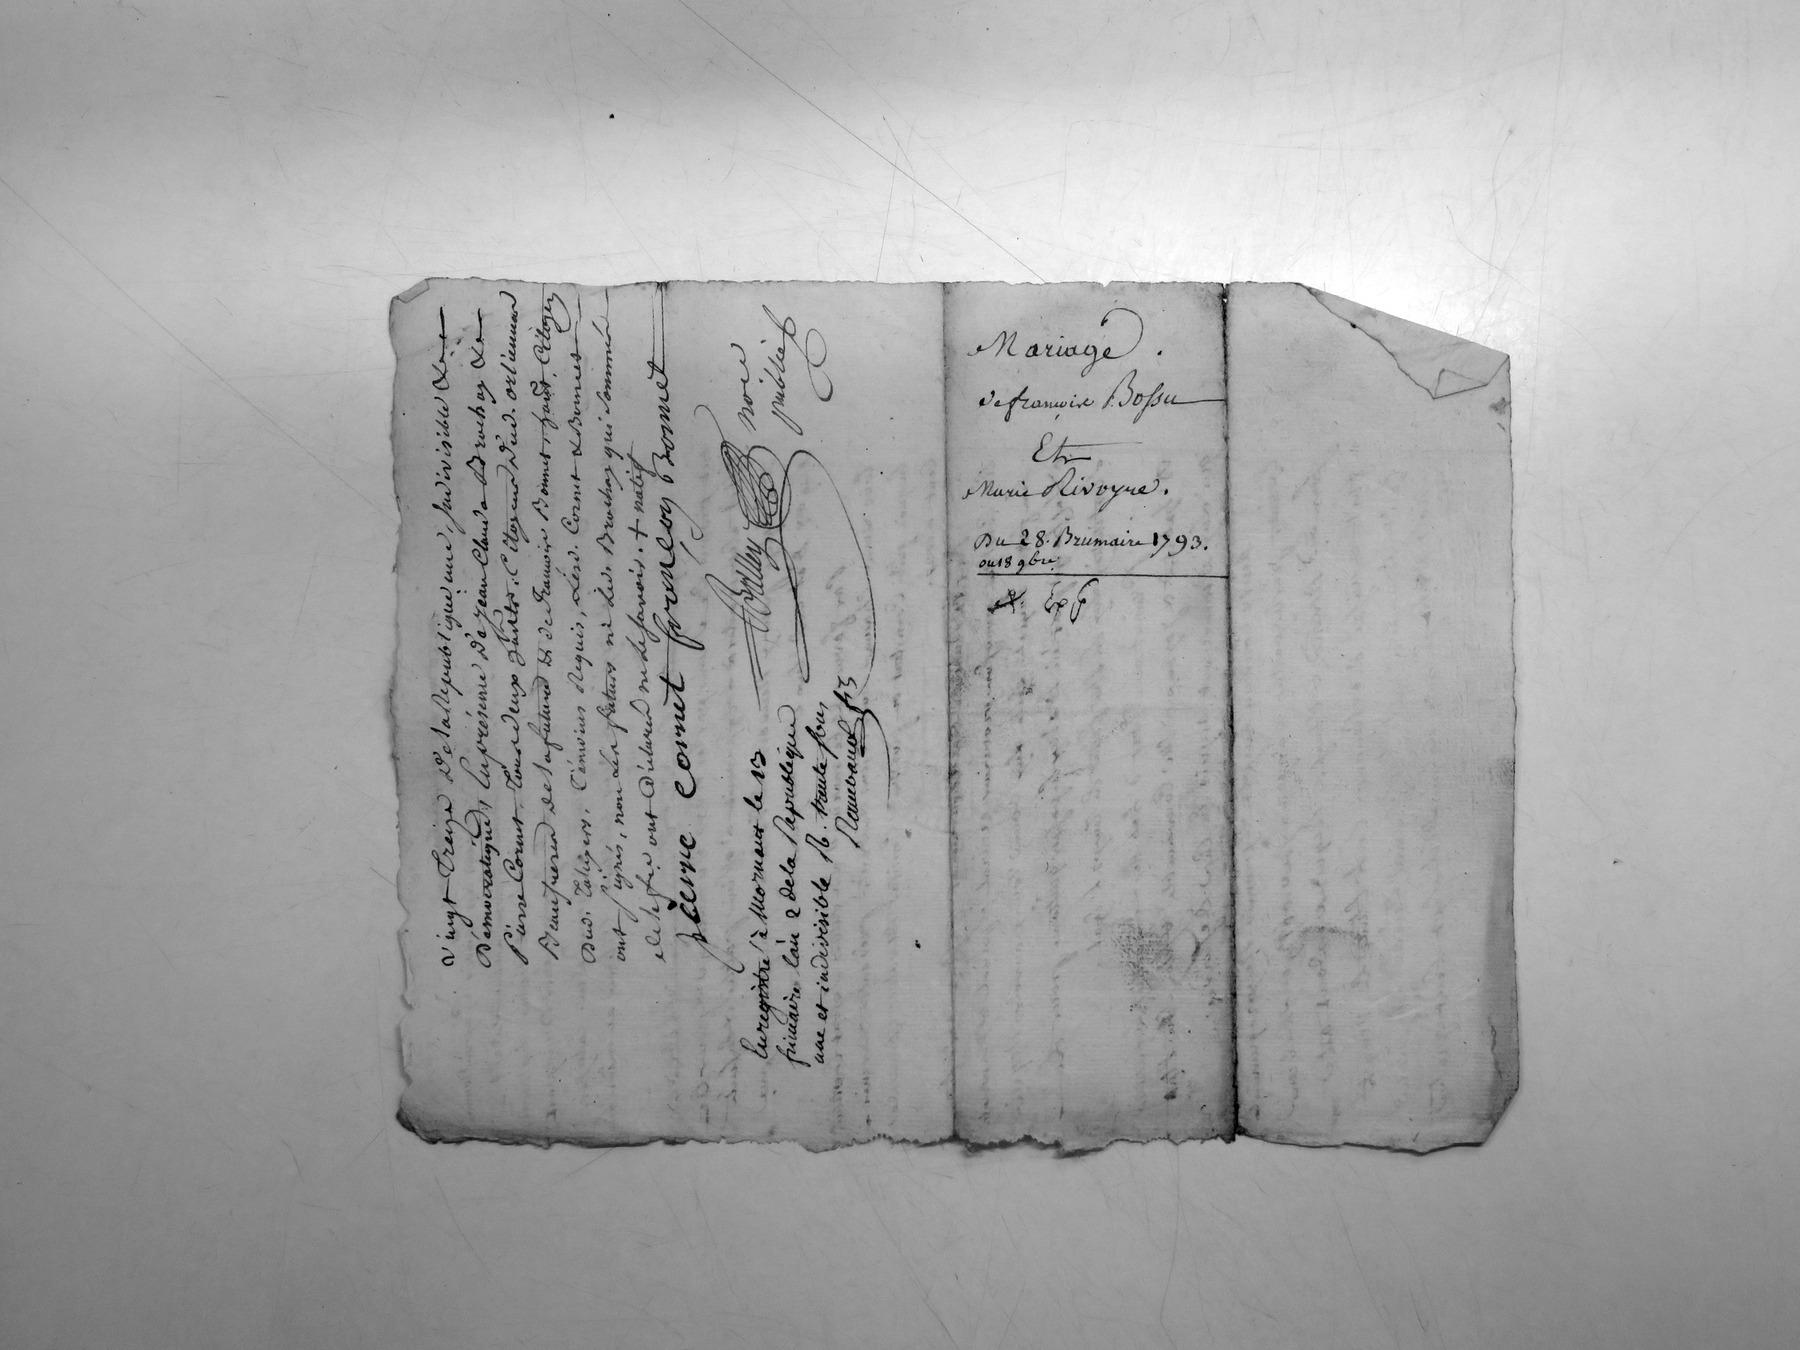 vingt treize De la Republique une Indivisible &a
Démocratique, En présence De Jean Claude Brochay &a
Pierre Cornet, Tous deux Citoyens Dud. ort
Beaufrere de la future & de francoise Bonnet Citoyen
Dud. Taluyers, Témoins Requis, Lesd. Cornet & Bonnet
ont signés, non les futurs ni led. Brochay qui sommés
de le fre ont Déclarés ne le savoir. +
pierre cornet françoy Bonnet
Bolley noie
publié
Enregistré à Mornant le 13
frimaire l'an 2 de la Republique
une et indivisible R. trente sous
Mariage.
de francoise Bossu
Et
Marie Rivoyre.
Du 28. Brumaire 1793.
ou 18 9bre.